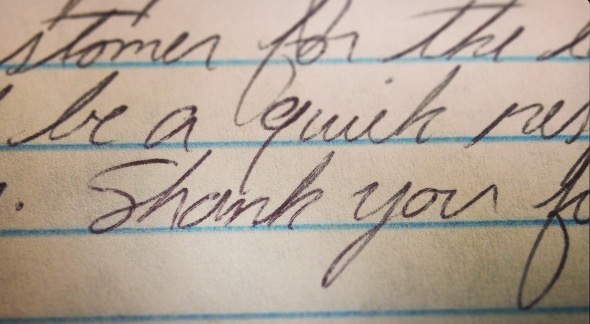 stomer for the
be a quick res
. Thank you fo